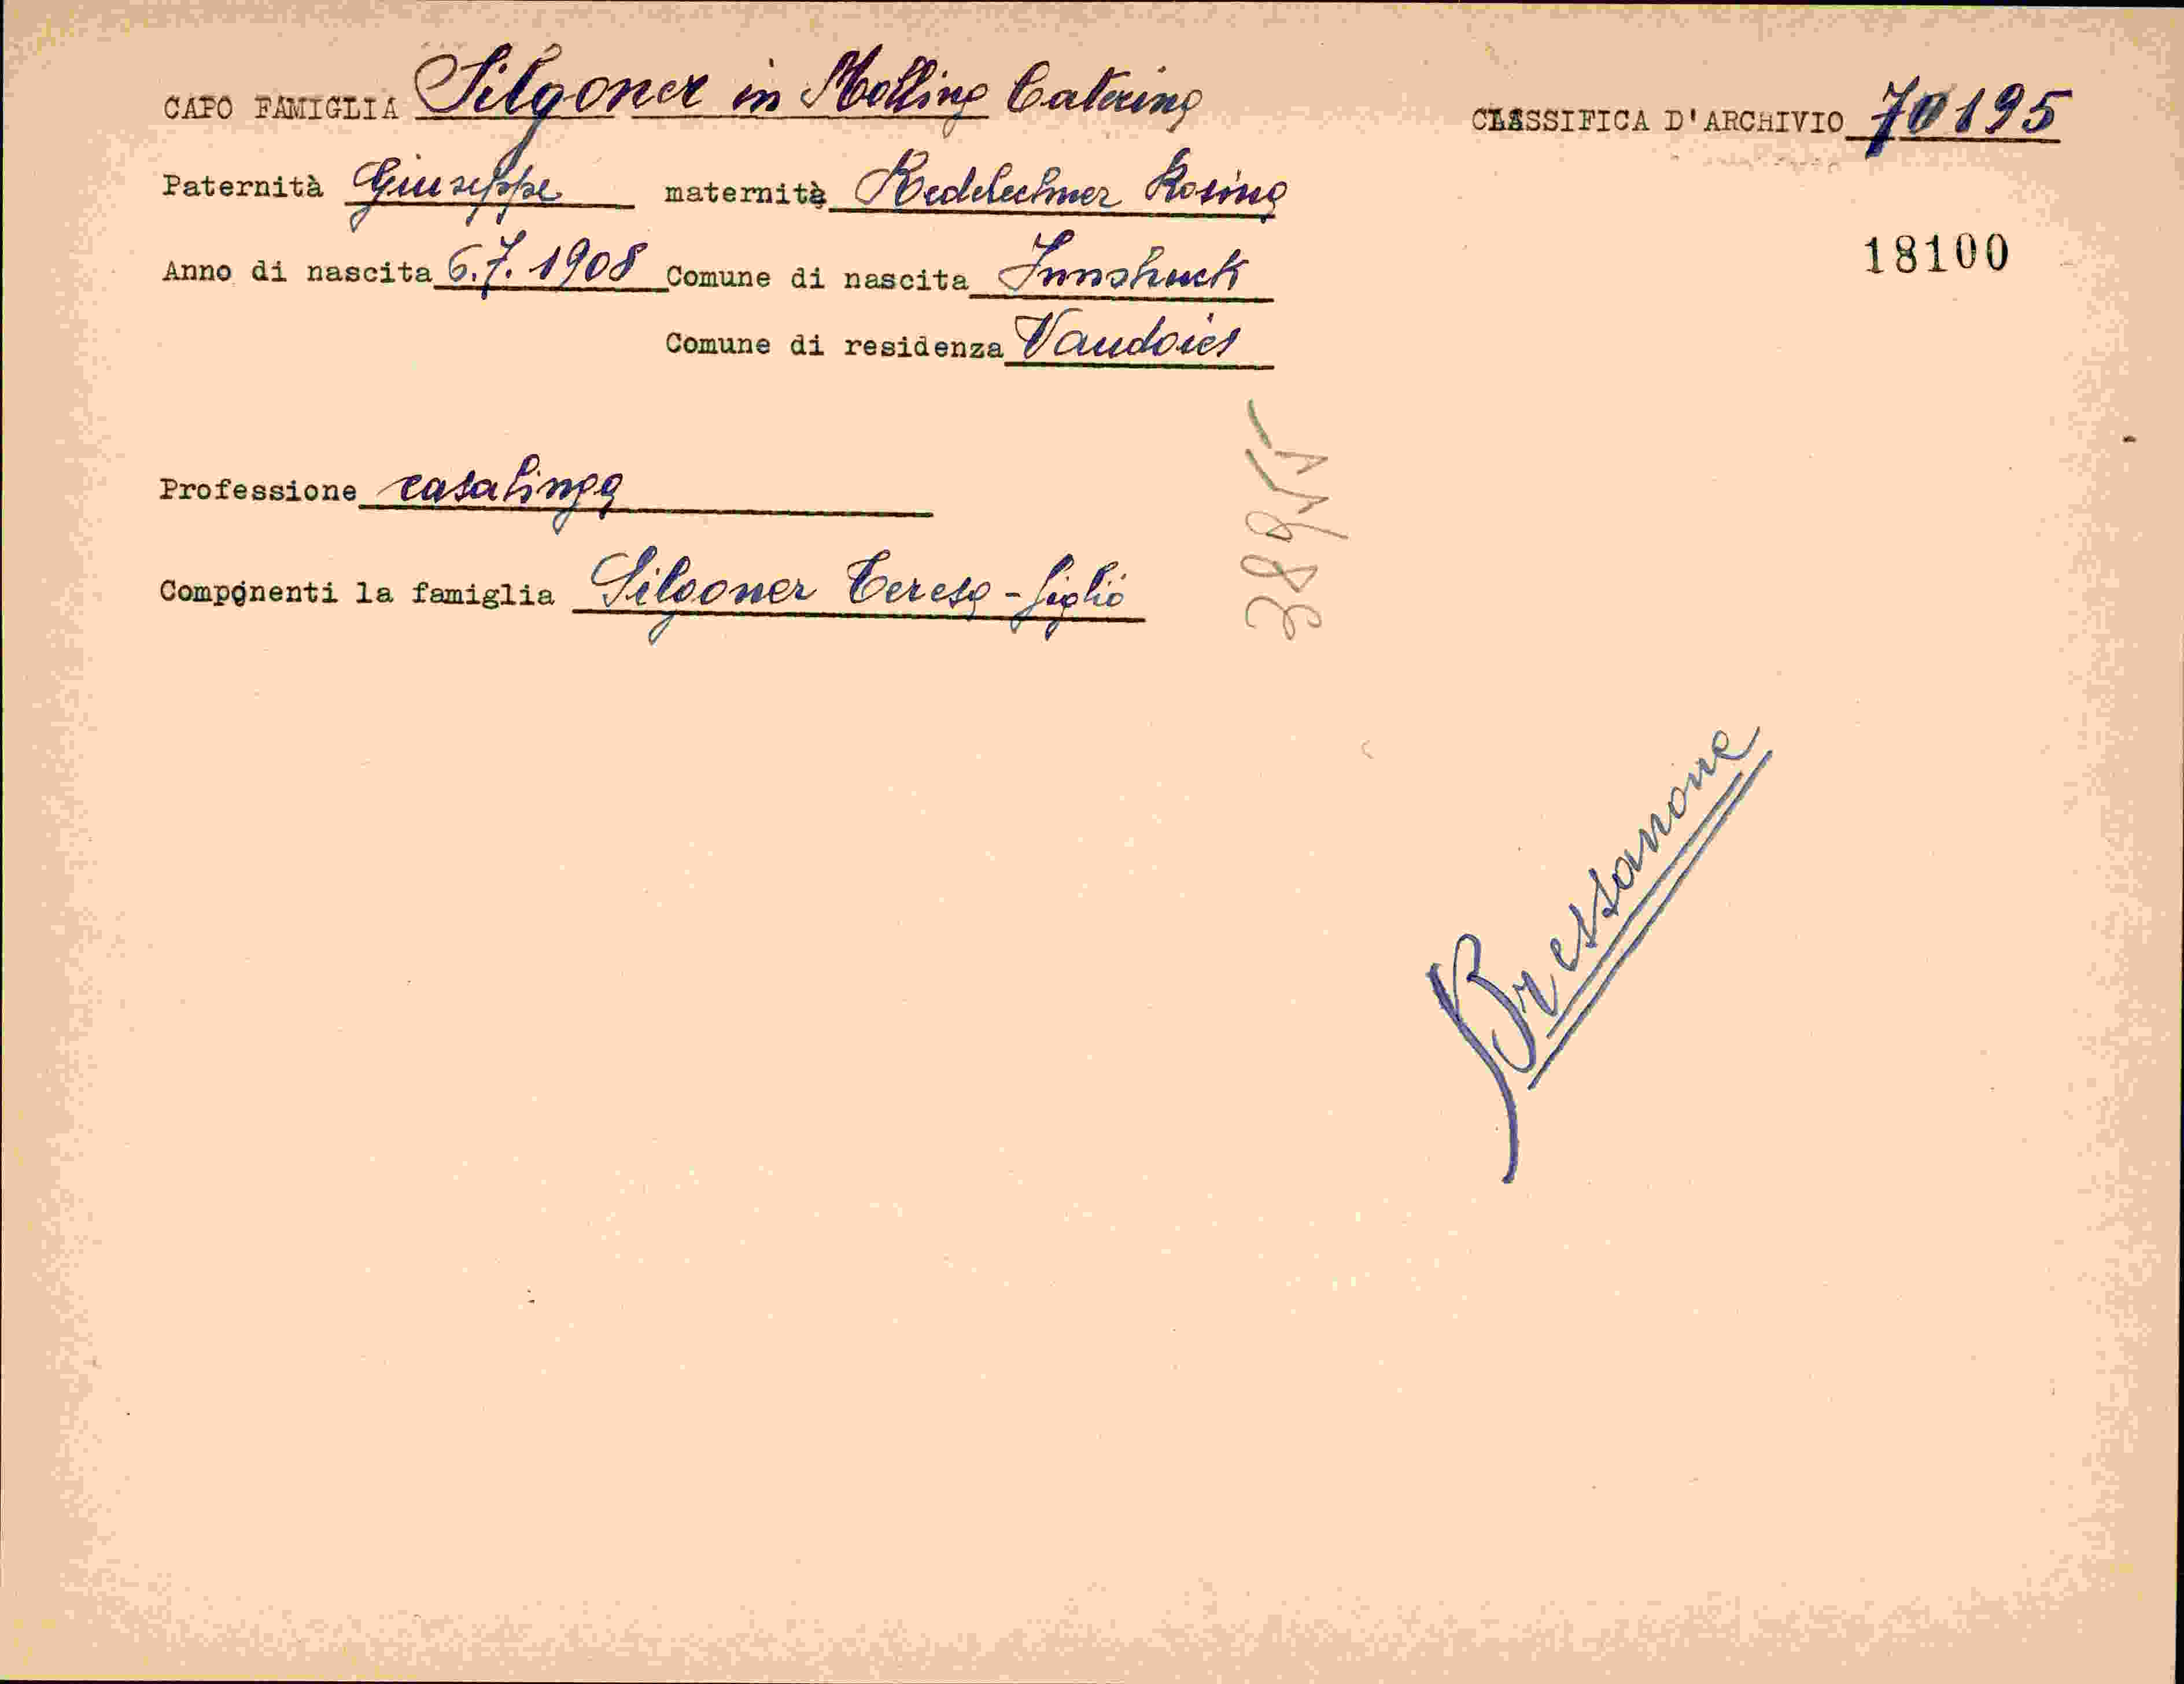 CAPO FAMIGLIA Silgoner in Molling Caterina
CLASSIFICA D'ARCHIVIO 70195
Paternità Giuseppe maternità Rosina
18100
Anno di nascita 6.7.1908 Comune di nascita Innsbruck
Comune di residenza Vandoies
Professione casalinga
Componenti la famiglia Silgoner Teresa - figlia
Bressanone